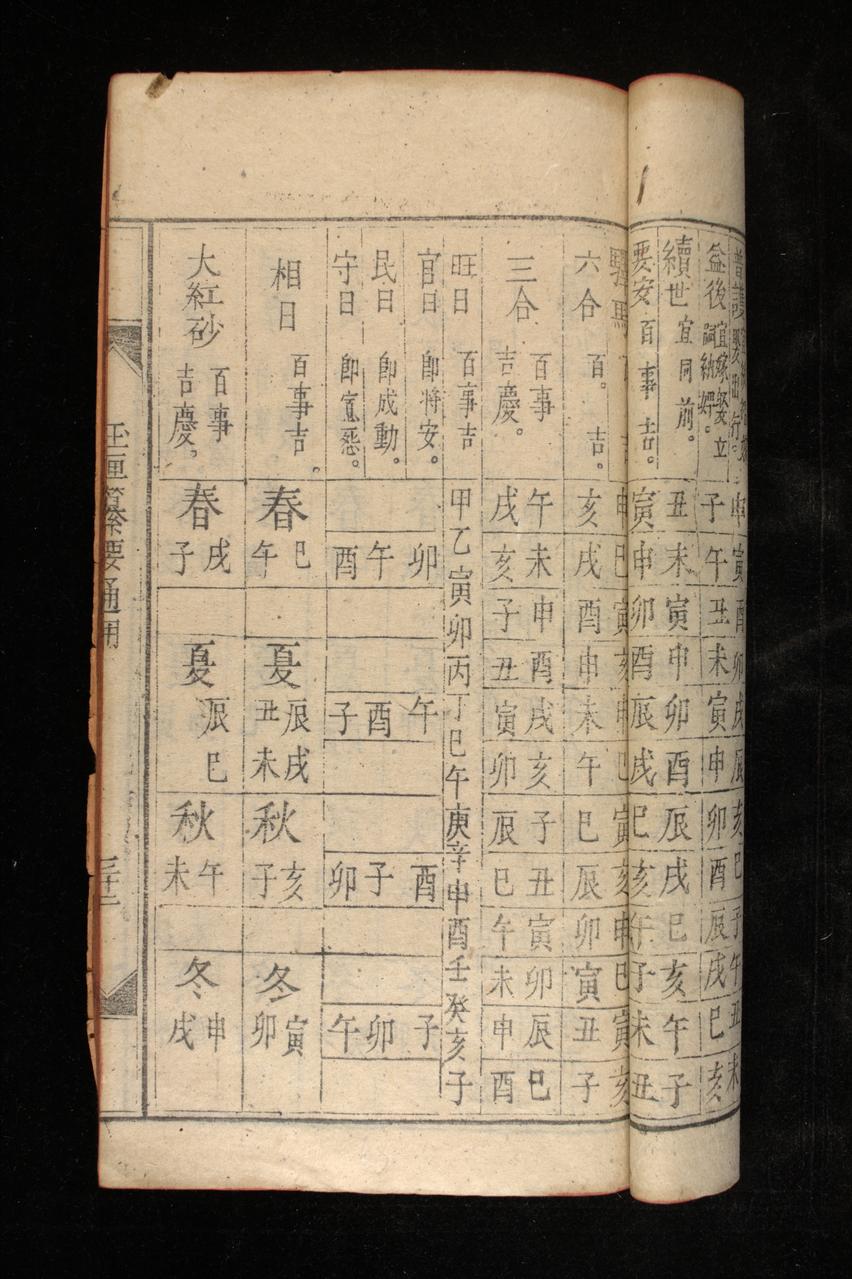 普護
申寅酉卯戌辰亥巳子午丑未
益後 宜嫁娶立
嗣納婿。
子午丑未寅申卯酉辰戌巳亥
續世 宜同前。
丑未寅申卯酉辰戌巳亥午子
要安 百事吉。
寅申卯酉辰戌巳亥午子未丑
驛馬
申巳寅亥申巳寅亥申巳寅亥
六合 百。吉。
亥戌酉申未午巳辰卯寅丑子
三合 百事
吉慶。
午未申酉戌亥子丑寅卯辰巳
戌亥子丑寅卯辰巳午未申酉
旺日 百事吉 甲乙寅卯丙丁巳午庚辛申酉壬癸亥子
官日 卽將安。 卯 午 酉 子
民日 卽成動。 午 酉 子 卯
守日 卽 酉 子 卯 午
相日 百事吉。 春 巳午 夏 辰戌丑未 秋 亥子 冬 寅卯
大紅砂 百事
吉慶, 春 戌子 夏 辰巳 秋 午未 冬 申戌
纂要通用 三十二